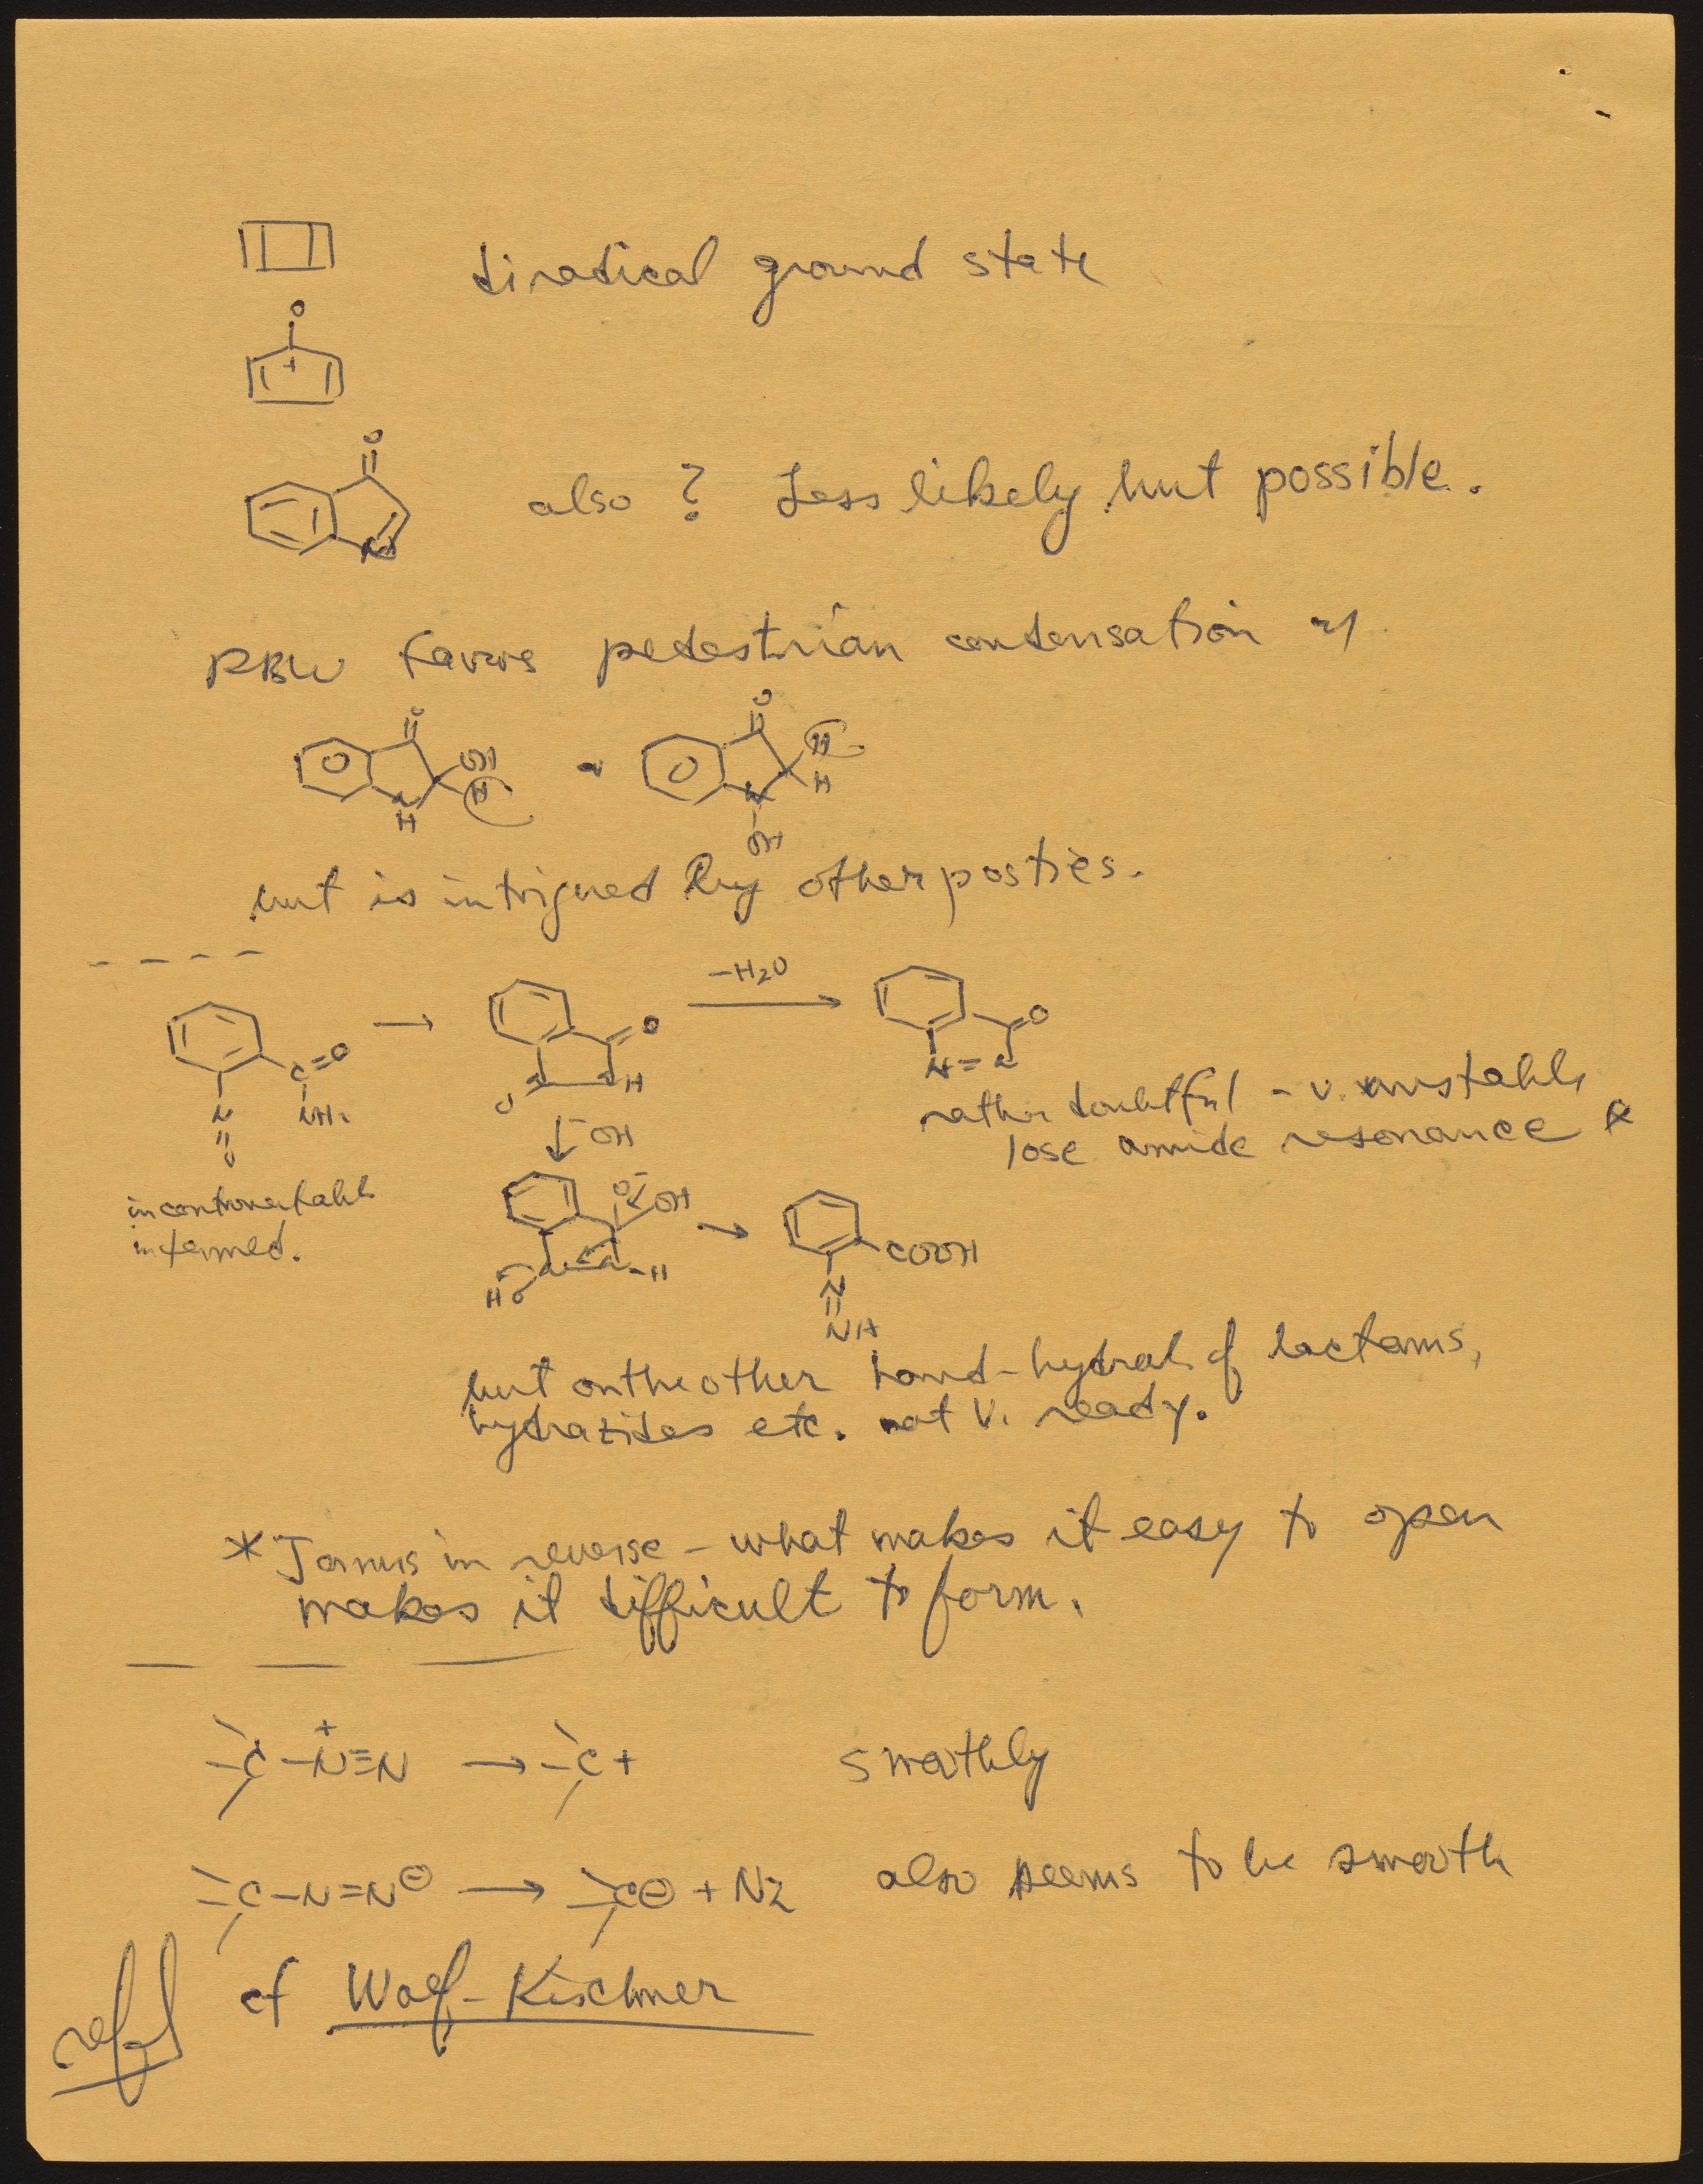 diradical ground state
O
+
O
N
also ? Less likely but possible.
RBW favors pedestrian condensation w/
O
OH
H
N
H
O
H
H
N
OH
but is intrigued by other posties.
C=O
N
NH2
O
→
O
N
N
H
O
-H2O
→
O
N=N
rather doubtful - v. unstable
lose amide resonance *
incontrovertable
intermed.
↓ -OH
O-
OH
N
N-H
HO
→
COOH
N
NH
but on the other hand - hydrol. of lactams,
hydrazides etc. not v. ready.
* Janus in reverse - what makes it easy to open
makes it difficult to form.
C-N+≡N → C+ smoothly
C-N=N⊖ → C⊖ + N2 also seems to be smooth
cf Wolf-Kischner